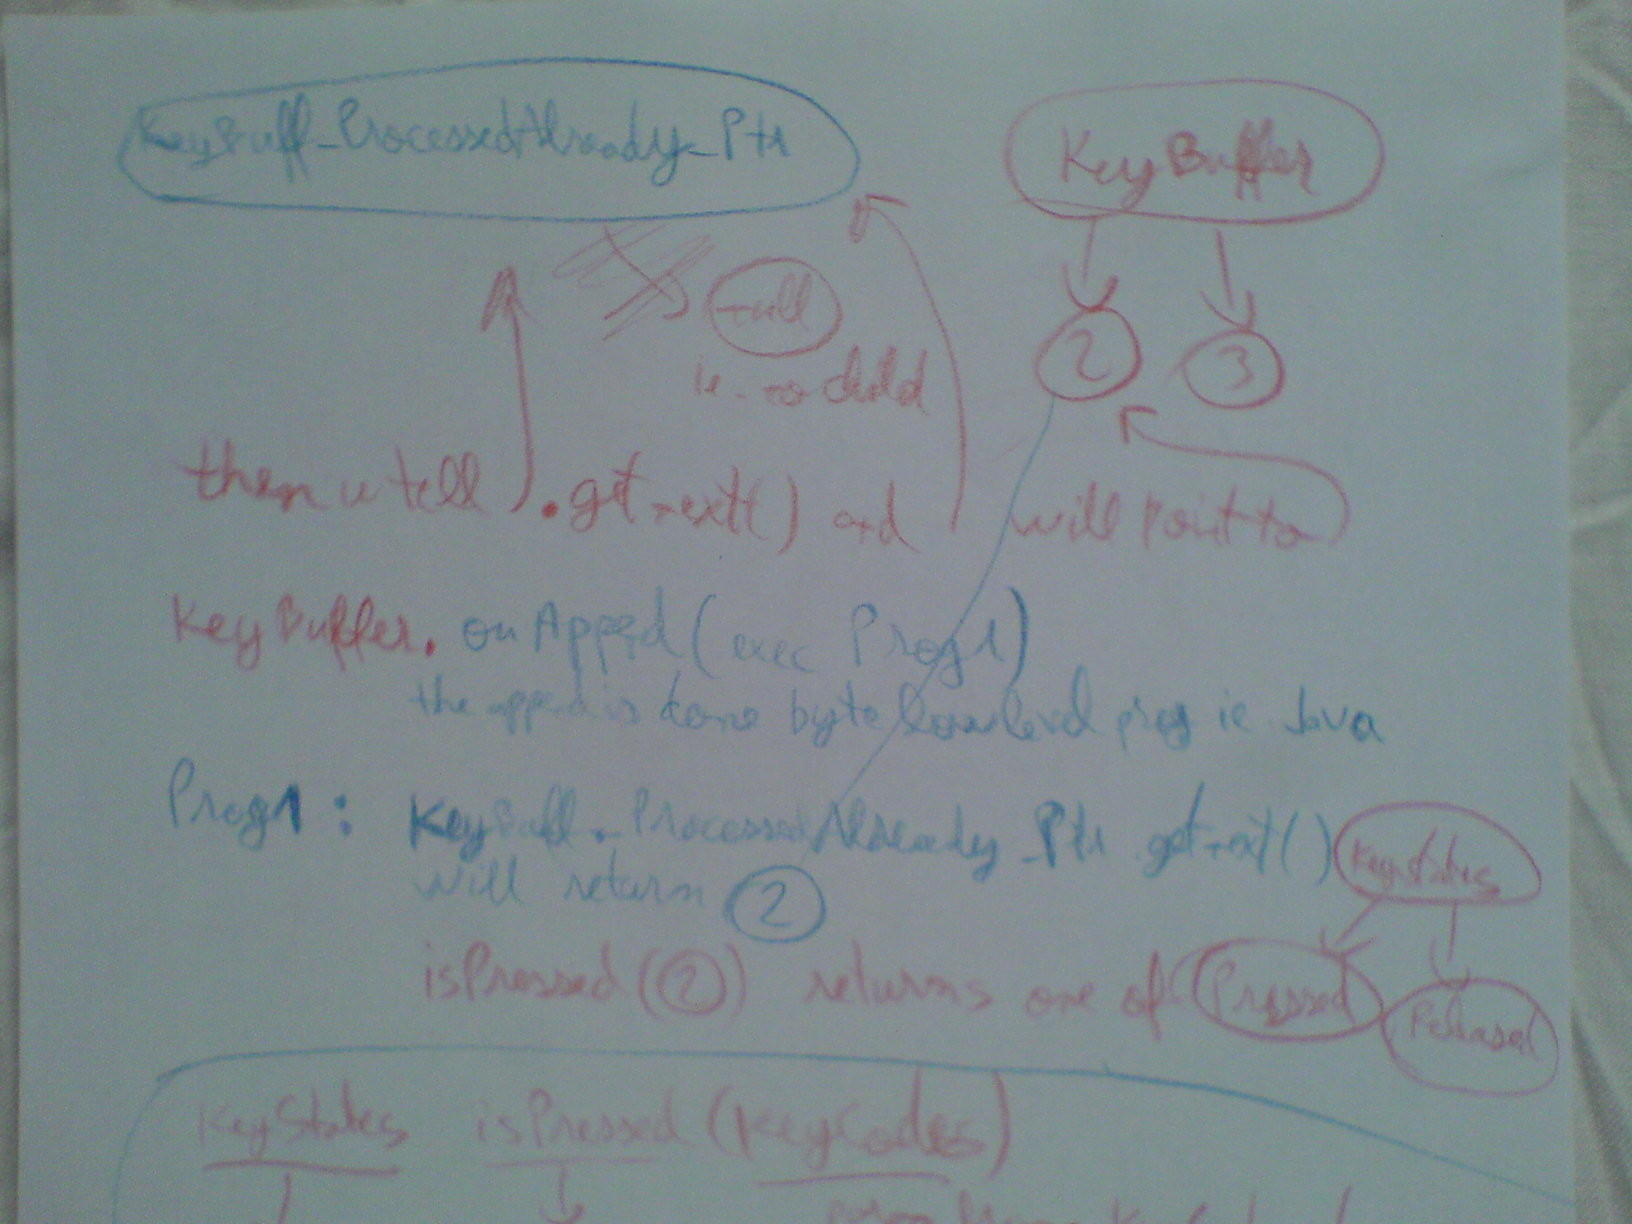 KeyBuff_ProcessedAlready_Ptr
KeyBuffer
null
2
3
ie. no child
then u tell .getnext() and will point to
KeyBuffer. onAppend(exec Prog1)
the append is done by the lowlevel prog ie Java
Prog1: KeyBuff_ProcessedAlready_Ptr getnext()
KeyStates
will return 2
isPressed(2) returns one of Pressed
Released
KeyStates isPressed(KeyCodes)